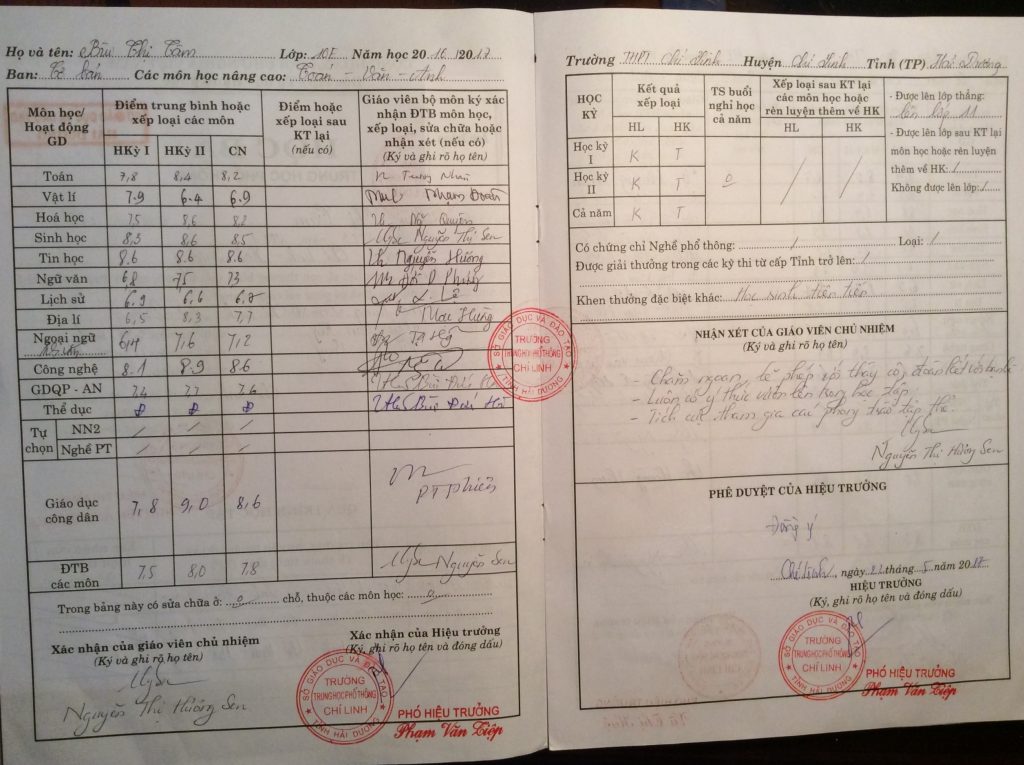 Họ và tên: Bùi Thị Tâm Lớp: 10F Năm học 2016 /2017
Ban: Cơ bản Các môn học nâng cao: Toán - Văn - Anh
Môn học/ Hoạt động GD
Điểm trung bình hoặc xếp loại các môn
Điểm hoặc xếp loại sau KT lại (nếu có)
Giáo viên bộ môn ký xác nhận ĐTB môn học, xếp loại, sửa chữa hoặc nhận xét (nếu có) (Ký và ghi rõ họ tên)
HKỳ I HKỳ II CN
Toán 7,8 8,4 8,2
Vật lí 7.9 6.4 6.9
Hoá học 7,5 8,6 8,2
Sinh học 8,3 8,6 8,5 Nguyễn Thị Sen
Tin học 8.6 8.6 8.6 Nguyễn Hương
Ngữ văn 6,8 7,5 7,3
Lịch sử 6.9 6.6 6.7
Địa lí 6,5 8,3 7,7
Ngoại ngữ 6,4 7,6 7,2
Công nghệ 8.1 8.9 8.6
GDQP - AN 7.4 7.7 7.6
Thể dục Đ Đ Đ
Tự chọn
NN2 / / /
Nghề PT / / /
Giáo dục công dân 7,8 9,0 8,6 PT Phiến
ĐTB các môn 7,5 8,0 7,8 Nguyễn Sen
Trong bảng này có sửa chữa ở: 0 chỗ, thuộc các môn học: 0
Xác nhận của giáo viên chủ nhiệm
(Ký và ghi rõ họ tên)
Nguyễn Thị Hương Sen
Xác nhận của Hiệu trưởng
(Ký, ghi rõ họ tên và đóng dấu)
SỞ GIÁO DỤC VÀ ĐÀO TẠO
TRƯỜNG
TRUNG HỌC PHỔ THÔNG
CHÍ LINH
TỈNH HẢI DƯƠNG
PHÓ HIỆU TRƯỞNG
Phạm Văn Tiệp
SỞ GIÁO DỤC VÀ ĐÀO TẠO
TRƯỜNG
TRUNG HỌC PHỔ THÔNG
CHÍ LINH
TỈNH HẢI DƯƠNG
Trường THPT Chí Linh Huyện Chí Linh Tỉnh (TP) Hải Dương
HỌC KỲ
Kết quả xếp loại
TS buổi nghỉ học cả năm
Xếp loại sau KT lại các môn học hoặc rèn luyện thêm về HK
HL HK HL HK
Học kỳ I K T
Học kỳ II K T 0 / /
Cả năm K T
- Được lên lớp thẳng:
Lên lớp 11
- Được lên lớp sau KT lại
môn học hoặc rèn luyện
thêm về HK: /
Không được lên lớp: /
Có chứng chỉ Nghề phổ thông: / Loại: /
Được giải thưởng trong các kỳ thi từ cấp Tỉnh trở lên: /
Khen thưởng đặc biệt khác: Học sinh tiên tiến
NHẬN XÉT CỦA GIÁO VIÊN CHỦ NHIỆM
(Ký và ghi rõ họ tên)
- Chăm ngoan, lễ phép với thầy cô, đoàn kết với bạn bè
- Luôn có ý thức vươn lên trong học tập
- Tích cực tham gia các phong trào tập thể.
Nguyễn Thị Hương Sen
PHÊ DUYỆT CỦA HIỆU TRƯỞNG
Đồng ý
Chí Linh, ngày tháng 5 năm 2017
HIỆU TRƯỞNG
(Ký, ghi rõ họ tên và đóng dấu)
SỞ GIÁO DỤC VÀ ĐÀO TẠO
TRƯỜNG
TRUNG HỌC PHỔ THÔNG
CHÍ LINH
TỈNH HẢI DƯƠNG
PHÓ HIỆU TRƯỞNG
Phạm Văn Tiệp